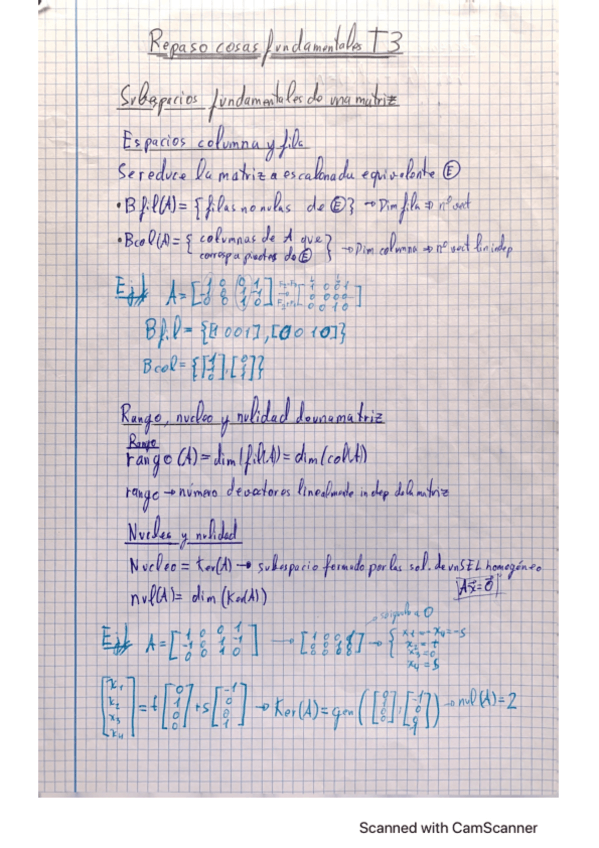 Repaso cosas fundamentales T3
Subespacios fundamentales de una matriz
Espacios columna y fila
Se reduce la matriz a escalonada equivalente Ⓔ
• B fil(A) = {filas no nulas de Ⓔ} → Dim fila ⇒ nº vect
• Bcol(A) = { columnas de A que
corresp a pivotes de Ⓔ } → Dim columna ⇒ nº vect lin indep
Ej1 A =
B fil = {[1 0 0 1], [0 0 1 0]}
Bcol =
Rango, nucleo y nulidad de una matriz
Rango
rango (A) = dim(fil(A)) = dim(col(A))
rango → número de vectores linealmente indep de la matriz
Nucleo y nulidad
Nucleo = Ker(A) → subespacio formado por las sol. de un SEL homogéneo
nul(A) = dim (Ker(A)) Ax = 0
Ej1 A =
x1 = -x4 = -s
x2 = t
x3 = 0
x4 = s
[x1 x2 x3 x4] = t [0 1 0 0] + s [-1 0 0 1] → Ker(A) = gen → nul(A) = 2
Scanned with CamScanner